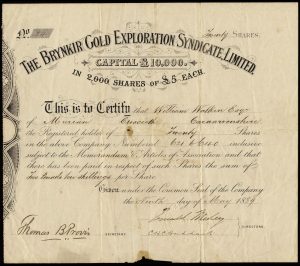 No Twenty SHARES.
THE BRYNKIR GOLD EXPLORATION SYNDICATE, LIMITED.
CAPITAL £10,000.
IN 2,000 SHARES OF £5 EACH.
This is to Certify that William Watkin Esq
of Muriau Criccieth Carnarvonshire
the Registered holder of Twenty Shares
in the above Company Numbered to inclusive
subject to the Memorandum & Articles of Association and that
there has been paid in respect of such Shares the sum of
Two Pounds ten shillings per Share
GIVEN under the Common Seal of the Company
the Ninth day of May 1889
Thomas B. Provis
SECRETARY.